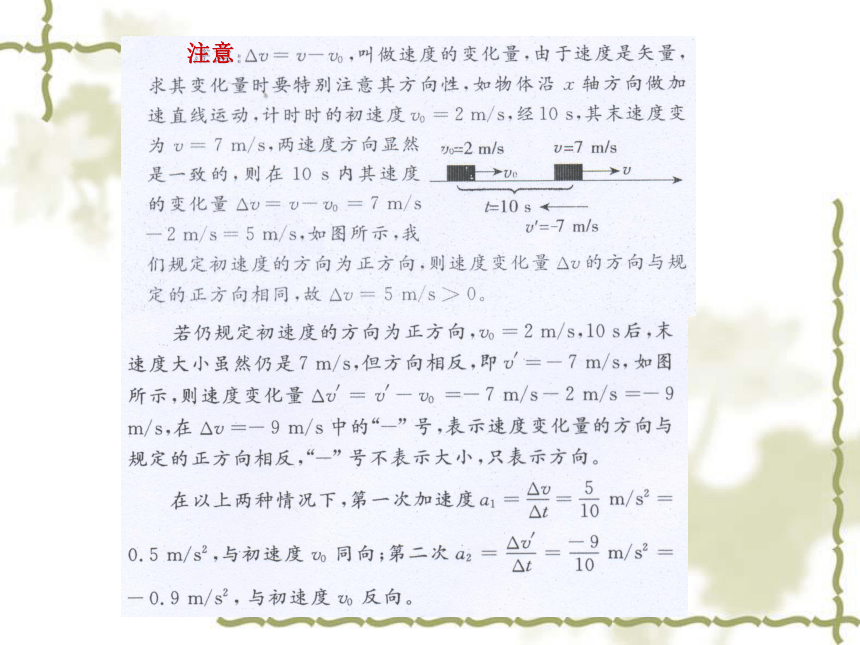 注意:Δv=v-v₀,叫做速度的变化量,由于速度是矢量,
求其变化量时要特别注意其方向性,如物体沿 x 轴方向做加
速直线运动,计时时的初速度 v₀ =2 m/s,经10 s,其末速度变
为 v=7 m/s,两速度方向显然
是一致的,则在 10 s 内其速度
的变化量 Δv=v-v₀ =7 m/s
-2 m/s=5 m/s,如图所示,我
v₀=2 m/s v=7 m/s
v₀ v
t=10 s
v'=-7 m/s
们规定初速度的方向为正方向,则速度变化量 Δv 的方向与规
定的正方向相同,故 Δv=5 m/s>0。
若仍规定初速度的方向为正方向,v₀=2 m/s,10 s后,末
速度大小虽然仍是7 m/s,但方向相反,即 v'=-7 m/s,如图
所示,则速度变化量 Δv'=v'-v₀=-7 m/s-2 m/s=-9
m/s,在 Δv=-9 m/s 中的“-”号,表示速度变化量的方向与
规定的正方向相反,“-”号不表示大小,只表示方向。
在以上两种情况下,第一次加速度 a₁=Δv/Δt=5/10 m/s²=
0.5 m/s²,与初速度 v₀ 同向;第二次 a₂=Δv'/Δt=-9/10 m/s²=
-0.9 m/s²,与初速度 v₀ 反向。